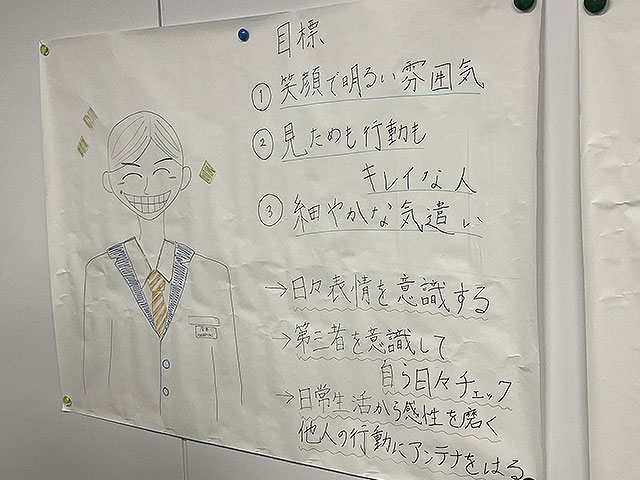 目標
① 笑顔で明るい雰囲気
② 見ためも行動も
キレイな人
③ 細やかな気遣い
→日々表情を意識する
→第三者を意識して
自ら日々チェック
→日常生活から感性を磨く
他人の行動にアンテナをはる